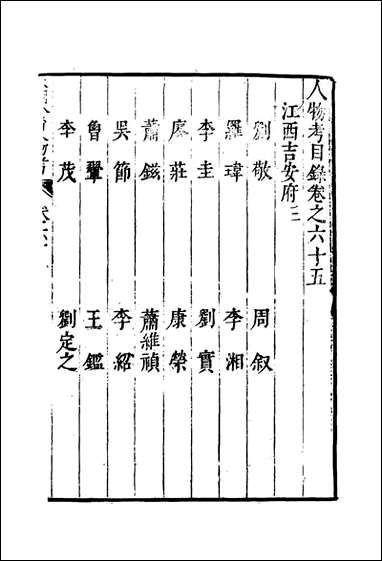 人物考目錄卷之六十五
江西吉安府三
劉敬　周叙
羅瑋　李湘
李圭　劉實
廖莊　康榮
蕭鎡　蕭維禎
吳節　李紹
魯鞏　王鑑
李茂　劉定之